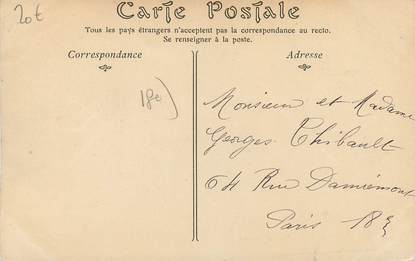 20€
Carte Postale
Tous les pays étrangers n'acceptent pas la correspondance au recto.
Se renseigner à la poste.
Correspondance
Adresse
180
Monsieur et Madame
Georges Thibault
64 Rue Damrémont
Paris 18e